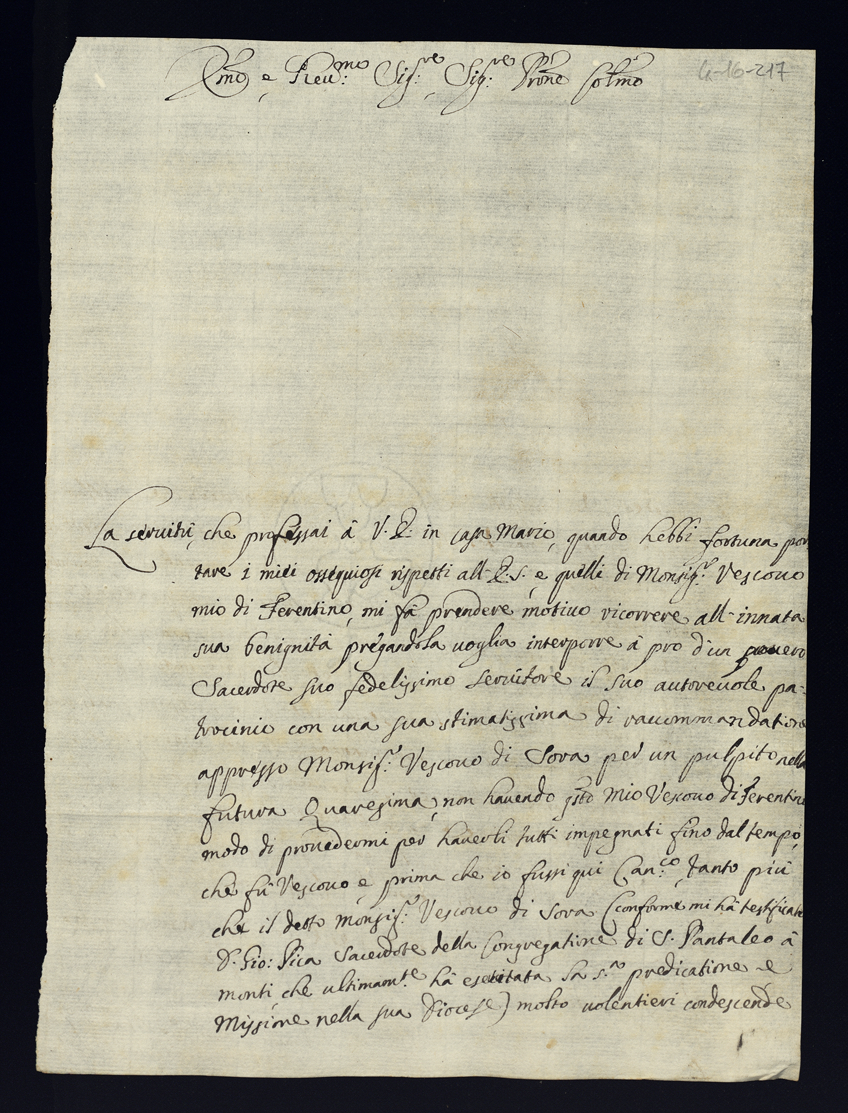 Ill.mo e Reu.mo Sig.re Sig.re Prone Col.mo
4-16-217
La seruitù, che professai à V.S. in casa Mario, quando hebbi fortuna por
tare i miei ossequiosi rispetti all-E.S., e quelli di Monsig.r Vescouo
mio di Ferentino, mi fà prendere motiuo ricorrere all-innata
sua benignità pregandola uoglia interporre à pro d'un pouero
Sacerdote suo fedelissimo seruitore il suo autoreuole pa-
trocinio con una sua stimatissima di raccommandatione
appresso Monsig.r Vescouo di Sora per un pulpito nella
futura Quaresima, non hauendo q.sto mio Vescouo di Ferentino
modo di prouedermi per hauerli tutti impegnati fino dal tempo,
che fù Vescouo, e prima che io fussi qui Can.co, tanto più
che il detto Monsig.r Vescouo di Sora (conforme mi hà testificato
D. Gio: Pica Sacerdote della Congregatione di S. Pantaleo à
monti, che ultimam.te hà esercitata la s.ta predicatione e
Missione nella sua Diocese) molto uolentieri condescende